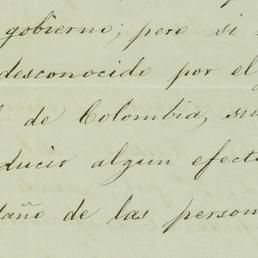 gobierno; pero si
desconocido por el
de Colombia, su
ducir algun efecto
daño de las person